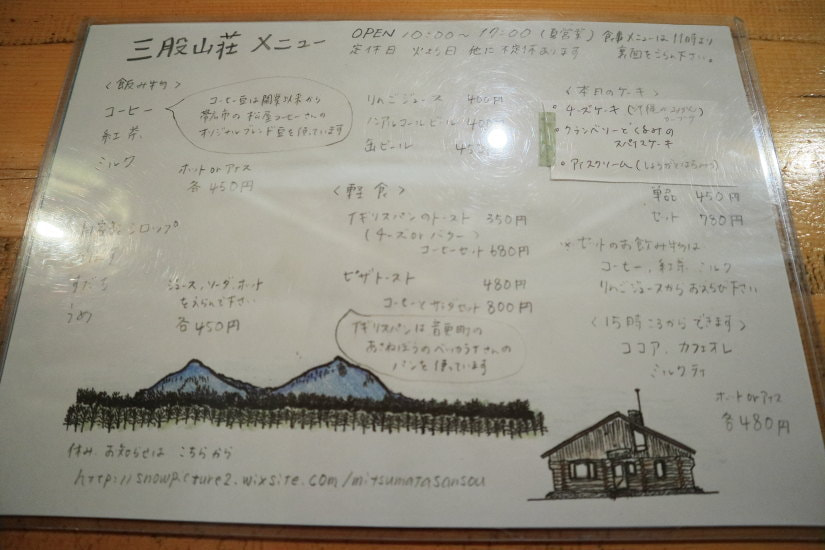 三股山荘 メニュー
OPEN 10:00〜17:00 (夏営業) 食事メニューは11時より
定休日 火水曜日 他に不定休あります 裏面をごらん下さい。
〈飲み物〉
コーヒー
紅茶
ミルク
コーヒー豆は開業以来から
帯広市の 松屋コーヒーさんの
オリジナルブレンド豆を使っています
ホットorアイス
各450円
自家製シロップ
すだち
うめ
ジュース、ソーダ、ホット
をえらんで下さい
各450円
りんごジュース 400円
ノンアルコールビール
缶ビール
〈軽食〉
イギリスパンのトースト 350円
(チーズorバター)
コーヒーセット 680円
ピザトースト 480円
コーヒーとサラダセット 800円
イギリスパンは音更町の
あさねぼうのベッカライさんの
パンを使っています
〈本月のケーキ〉
○チーズケーキ
○クランベリーとくるみの
スパイスケーキ
○アイスクリーム(しょうがとはちみつ)
単品 450円
セット 780円
※セットのお飲み物は
コーヒー、紅茶、ミルク
りんごジュースからおえらび下さい
〈15時ころからできます〉
ココア、カフェオレ
ミルクティ
ホットorアイス
各480円
休み、お知らせは こちらから
http://snowpicture2.wixsite.com/mitsumatasansou